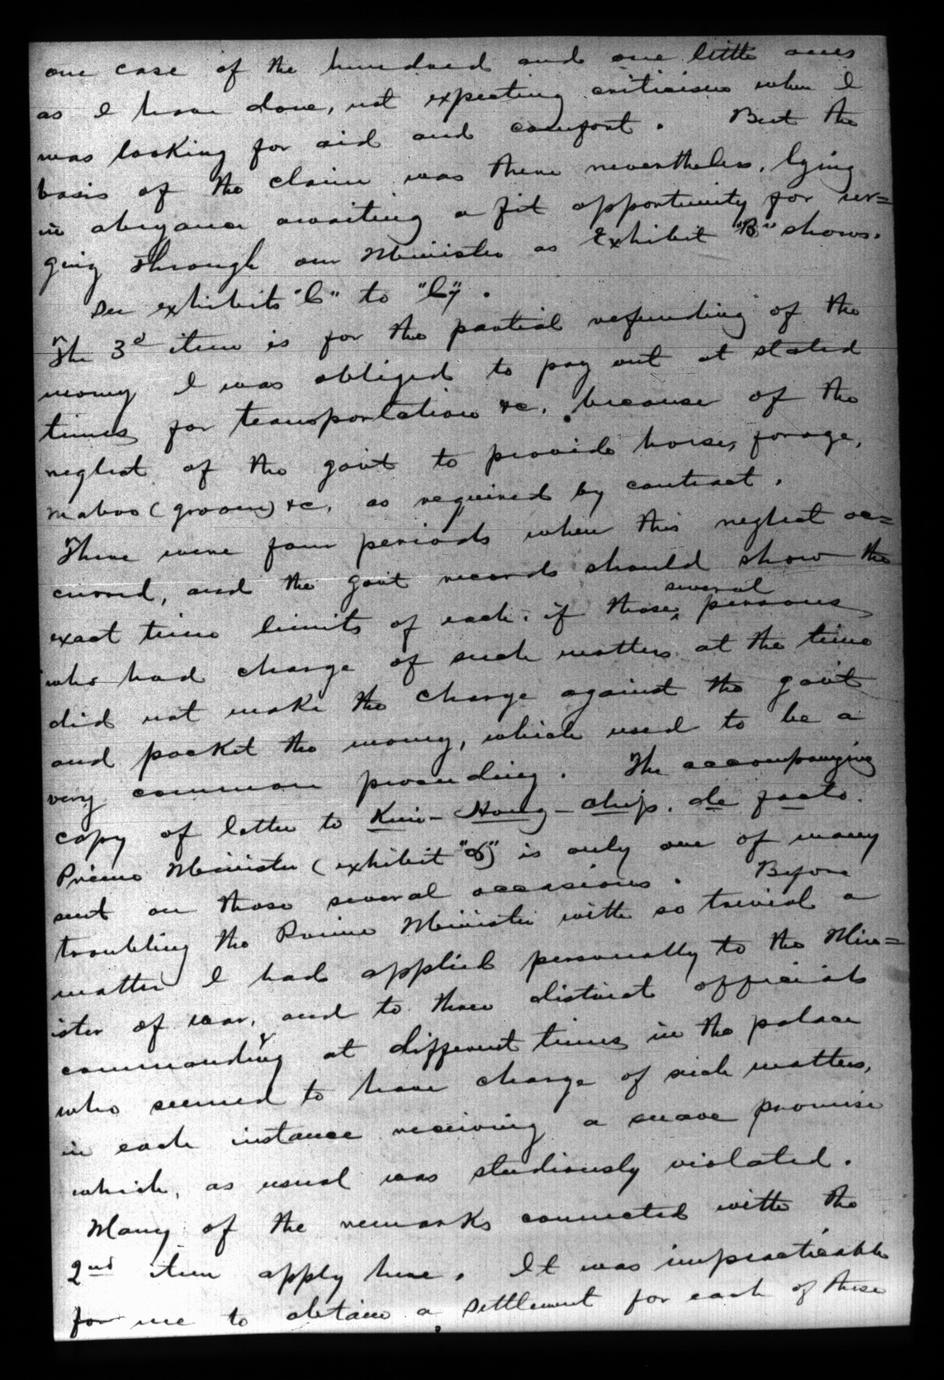 one case of the hundred and one little ones
as I have done, not expecting criticism when I
was looking for aid and comfort. But the
basis of the claim was there nevertheless, lying
in abeyance awaiting a fit opportunity for ur=
ging through our Minister as Exhibit "B" shows.
See exhibits "C" to "C7".
The 3d item is for the partial refunding of the
money I was obliged to pay out at stated
times for transportation &c. because of the
neglect of the gov't to provide horses, forage,
maboo (groom) &c. as required by contract.
There were four periods when this neglect oc=
curred, and the gov't records should show the
exact time limits of each: if those several persons
who had charge of such matters at the time
did not make the charge against the gov't
and pocket the money, which used to be a
very common proceeding. The accompanying
copy of letter to Kim-Hong-chip. de facto.
Prime Minister (exhibit ) is only one of many
sent on those several occasions. Before
troubling the Prime Minister with so trivial a
matter I had applied personally to the Min=
ister of war, and to three distinct officials
commanding at different times in the palace
who seemed to have charge of such matters,
in each instance receiving a suave promise
which, as usual was studiously violated.
Many of the remarks connected with the
2nd item apply here. It was impracticable
for me to obtain a settlement for each of these